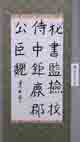 秘書監檢校
侍中鉅鹿郡
公臣魏